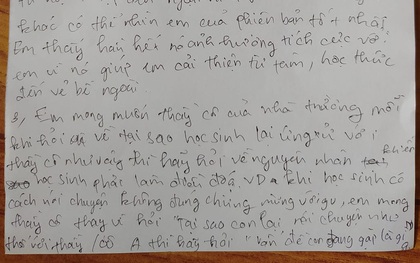 khác có thể nhìn em của phiên bản tốt nhất
Em thấy hầu hết nó ảnh hưởng tích cực với
em vì nó giúp em cải thiện từ tâm, học thức
đến vẻ bề ngoài.
3, Em mong muốn thầy cô của nhà trường mỗi
khi hỏi về tại sao học sinh lại ứng xử với
thầy cô như vậy thì hãy hỏi về nguyên nhân khiến
học sinh phải làm điều đó. VD khi học sinh có
cách nói chuyện không đúng chừng mực với gv, em mong
thầy cô thay vì hỏi "Tại sao con lại nói chuyện như
thế với thầy/cô A thì hãy hỏi "vấn đề con đang gặp là gì